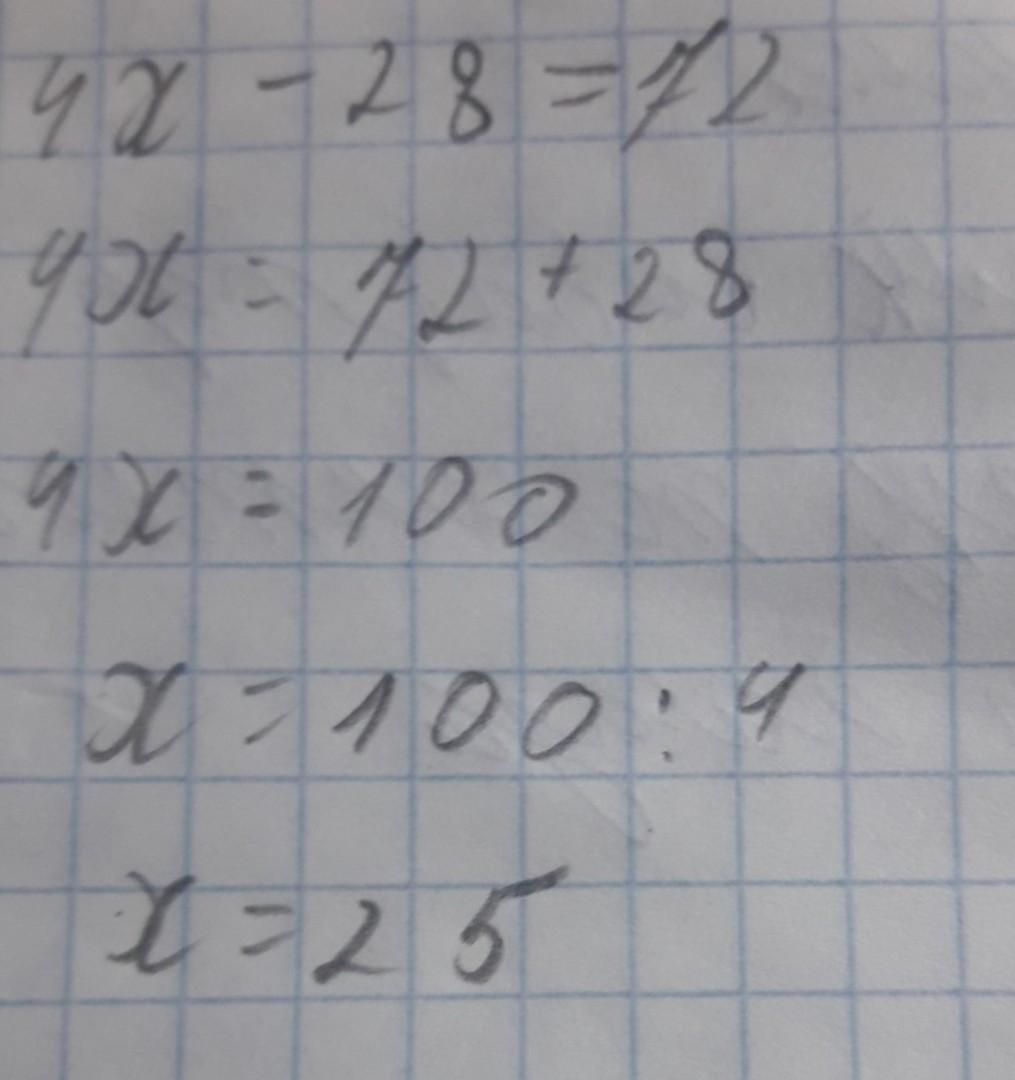 4x - 28 = 72
4x = 72 + 28
4x = 100
x = 100 : 4
x = 25